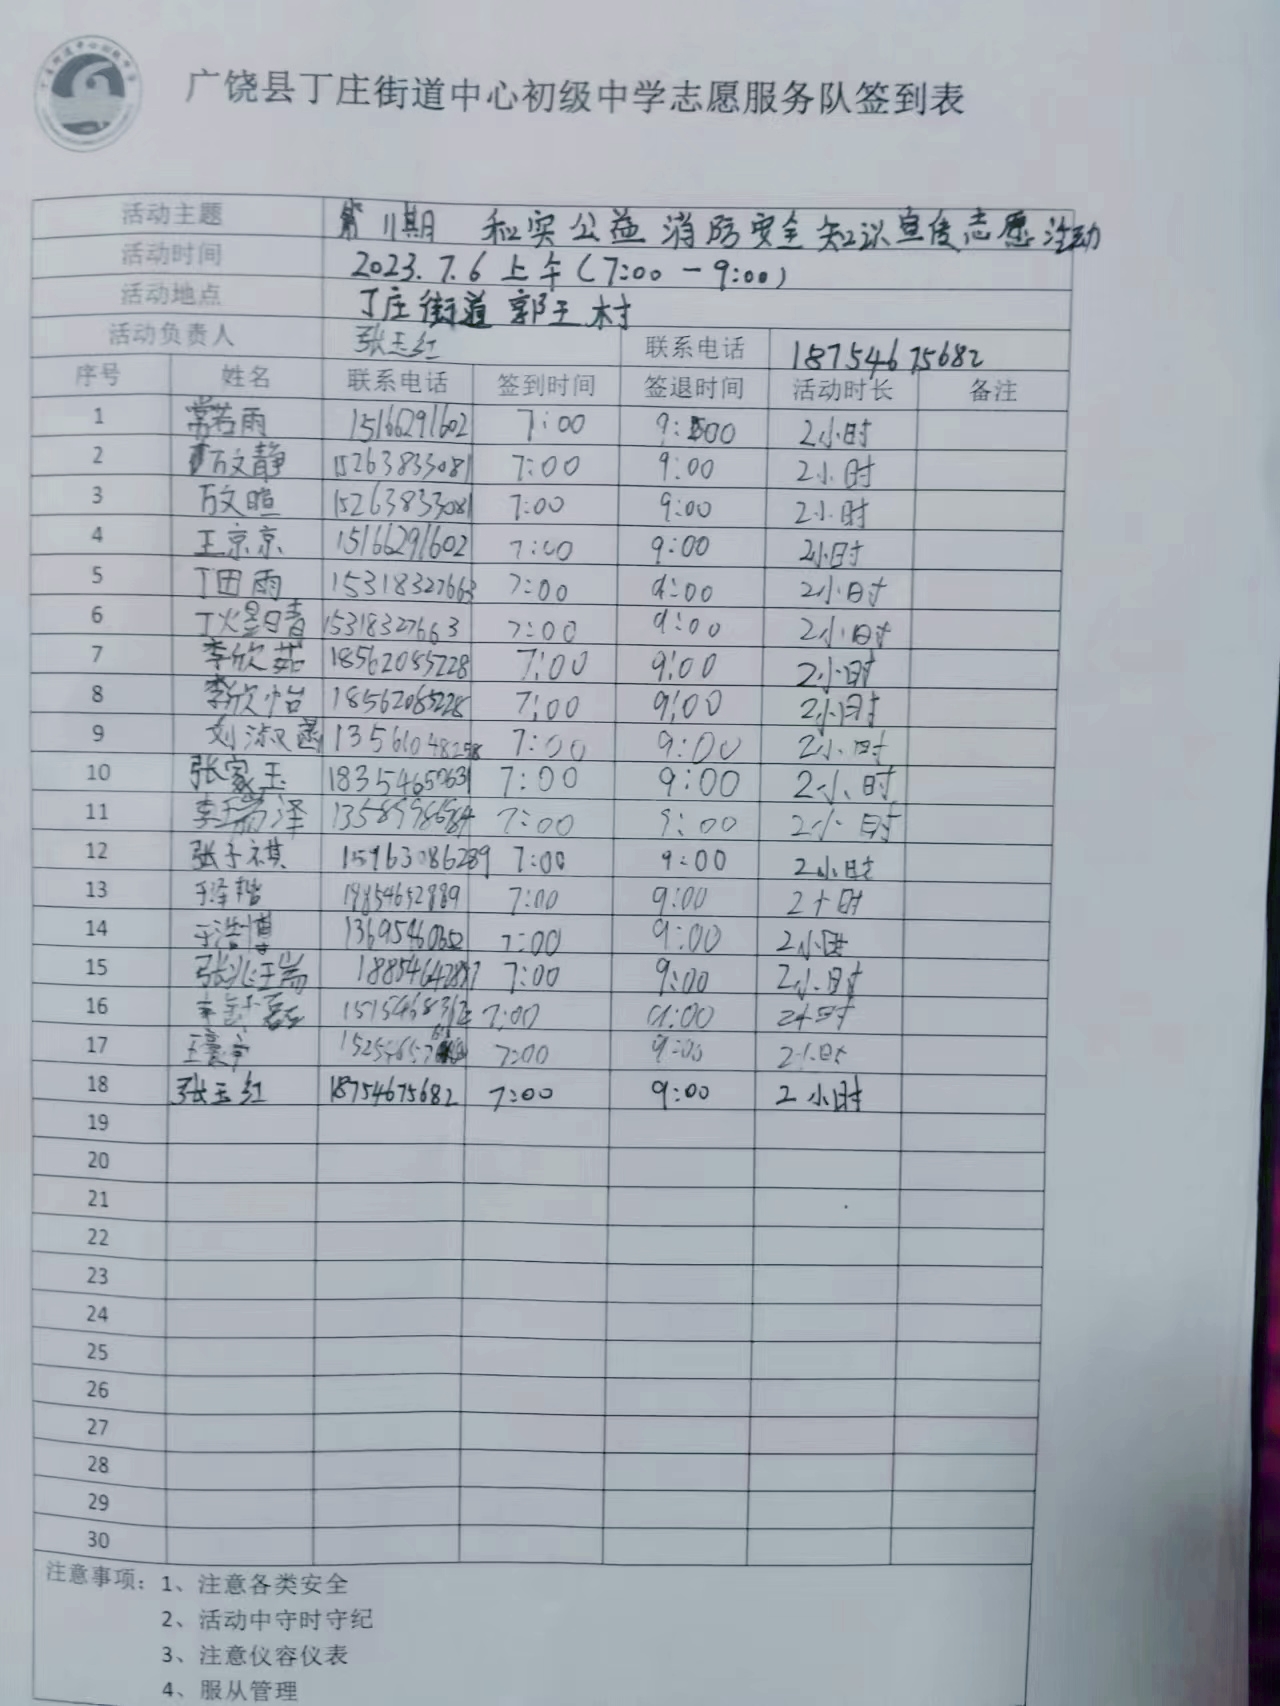 广饶县丁庄街道中心初级中学志愿服务队签到表
活动主题 第11期 和实公益消防安全知识宣传志愿活动
活动时间 2023.7.6上午(7:00-9:00)
活动地点 丁庄街道郭王村
活动负责人 张玉红 联系电话 18754675682
序号 姓名 联系电话 签到时间 签退时间 活动时长 备注
1 常若雨 15166291602 7:00 9:00 2小时
2 万文静 15263833081 7:00 9:00 2小时
3 万文暄 15263833081 7:00 9:00 2小时
4 王京京 15166291602 7:00 9:00 2小时
5 丁田雨 15318327663 7:00 9:00 2小时
6 丁煜晴 15318327663 7:00 9:00 2小时
7 李欣茹 18562085228 7:00 9:00 2小时
8 李欣怡 18562085228 7:00 9:00 2小时
9 刘淑菡 7:00 9:00 2小时
10 张家玉 18354650631 7:00 9:00 2小时
11 李瑞泽 7:00 9:00 2小时
12 张子祺 15963086289 7:00 9:00 2小时
13 于泽楷 18854652889 7:00 9:00 2小时
14 于浩博 13695460652 7:00 9:00 2小时
15 张兆瑞 7:00 9:00 2小时
16 7:00 9:00 2小时
17 王豪宇 7:00 9:00 2小时
18 张玉红 18754675682 7:00 9:00 2小时
19
20
21
22
23
24
25
26
27
28
29
30
注意事项：1、注意各类安全
2、活动中守时守纪
3、注意仪容仪表
4、服从管理